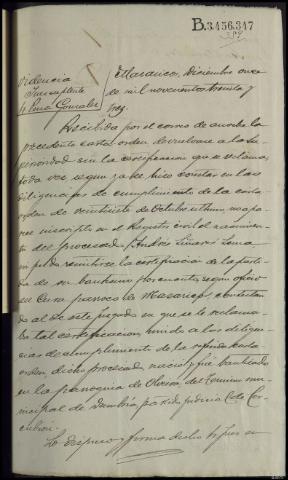 B.3.456.347
Providencia
Juez suplente
Sr. Pena Gonzalez
Mazaricos, Diciembre once
de mil novecientos treinta y
tres.
Recibida por el correo de anoche la
precedente carta orden, devuelvase a la Su-
perioridad sin la certificacion que se reclama,
toda vez segun ya se hizo constar en las
diligencias de cumplimiento de la carta
orden de veintiocho de Octubre ultimo, no apa-
rece inscripto en el Registro civil el nacimien-
to del procesado, Andres Liñares Lema
remitirse la certificación de la parti-
da de su bautismo por cuanto, segun oficio
del Cura parroco de Mazaricos, contestan-
do al de este juzgado en que se le reclama-
ba tal certificacion, unido a las diligen-
cias de cumplimiento de la referida carta
orden, dicho procesado nació y fué bautizado
en la parroquia de Olveira, del termino mu-
nicipal de Dumbría, partido judicial de Cor-
cubion.
Lo dispuso y firma dicho Sr. Juez